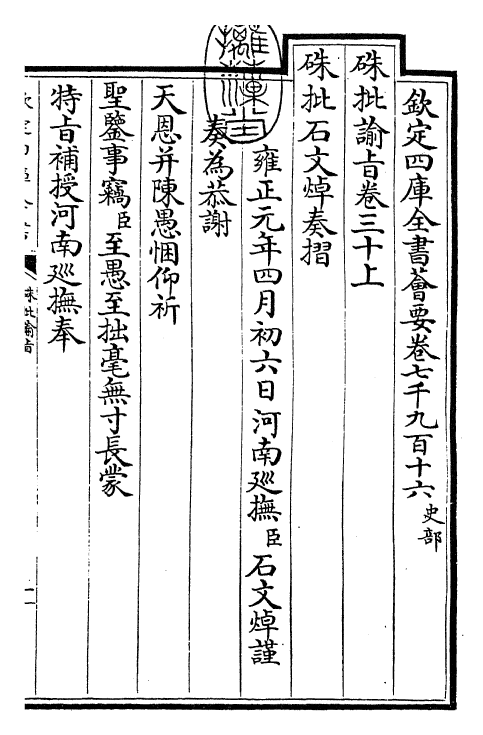 欽定四庫全書薈要卷七千九百十六史部
硃批諭旨卷三十上
硃批石文焯奏摺
雍正元年四月初六日河南廵撫臣石文焯謹
奏為恭謝
天恩并陳愚悃仰祈
聖鑒事竊臣至愚至拙毫無寸長蒙
特旨補授河南廵撫奉
硃批諭旨